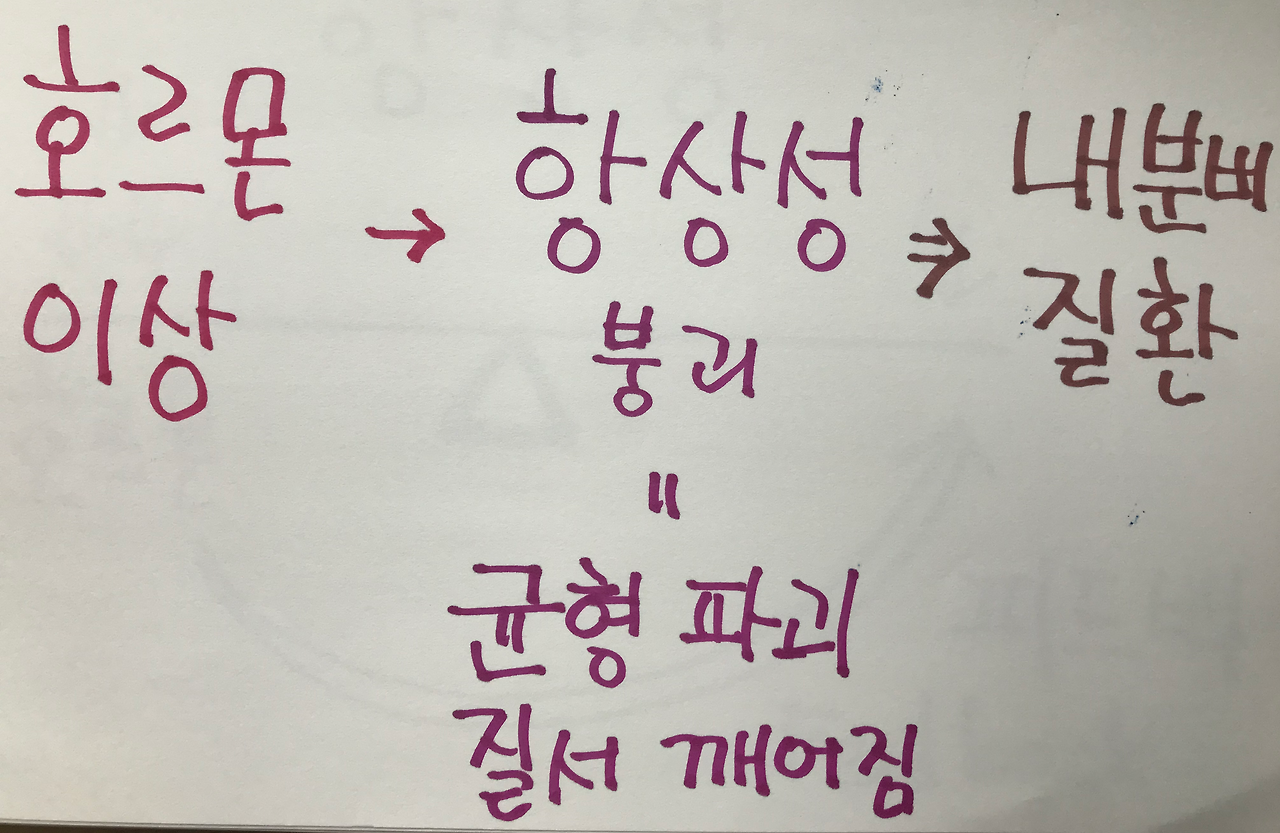 호르몬
이상
→
항상성
붕괴
⇒
내분삐
질환
=
균형 파괴
질서 깨어짐